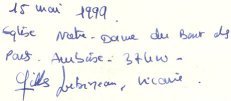 15 mai 1999.
Eglise Notre-Dame du Bout des
Ponts. Amboise - 37400 -
Gilles Lubineau, vicaire.